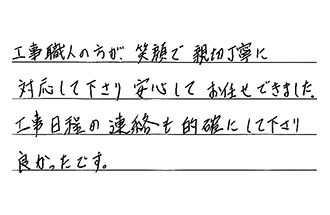 工事職人の方が、笑顔で 親切丁寧に
対応して下さり 安心して お任せできました。
工事日程の 連絡も 的確にして下さり
良かったです。